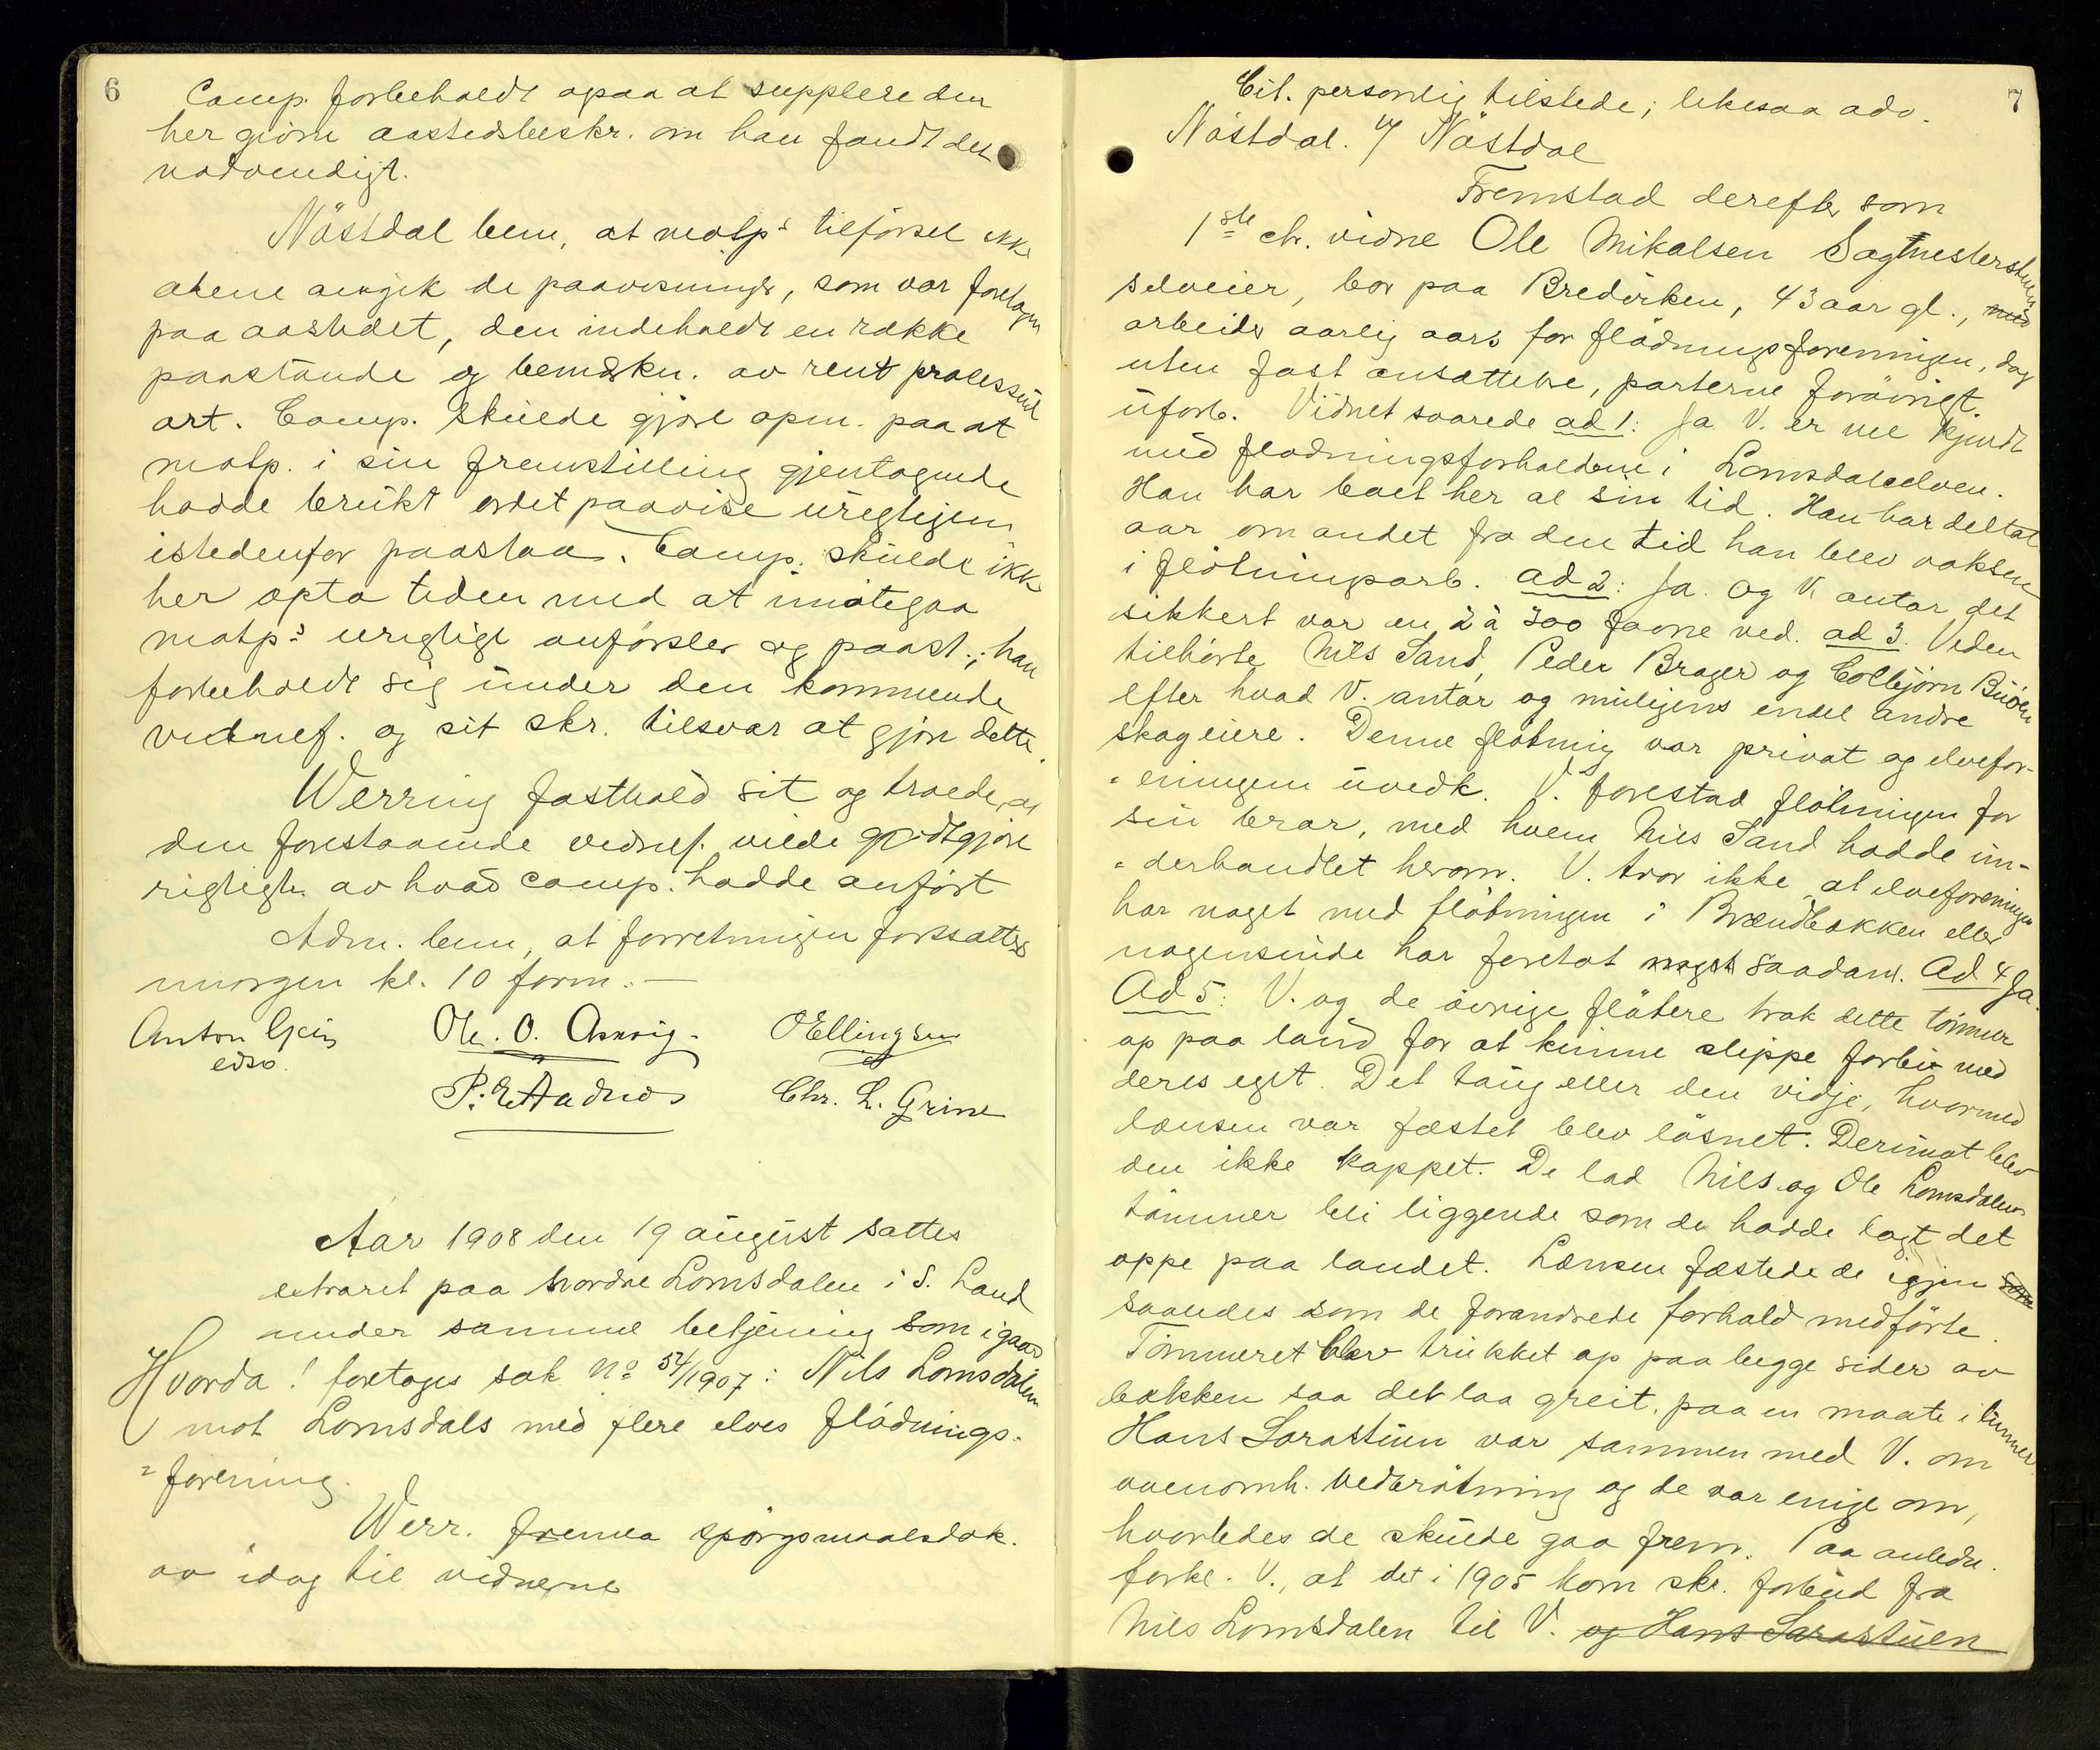 6
Comp. forbeholdt ogsaa at supplere den
her gjorte aastedsbeskr. om han fandt det
nødvendigt.
Nöstdal bem, at motp.s tilförsel ikke
alene angik de paavisninger, som var foretagen
paa aastedet, den indeholdt en række
paastande og bemærkn. av rent processuel
art. Comp. skulde gjøre opm. paa at
motp. i sin fremstilling gjentagende
hadde brukt ordet paavise urigtigen
istedenfor paastaa. Comp. skulde ikke
her opta tiden med at imøtegaa
motp.s urigtige anførsler og paast.; han
forbeholdt sig under den kommende
vidnef. og sit skr. tilsvar at gjøre dette.
Werring fastholdt sit og troede, at
den forestaaende vidnef. vilde godtgjøre
rigtigh. av hvad comp. hadde anført
Adm. bem, at forretningen fortsættes
imorgen kl. 10 form. —
Anton
edsv.
Ole. O.
OEllingsen
P. E. Aadnes
Chr. L. Grime
Aar 1908 den 19 august sattes
extraret paa Nordre Lomsdalen i S. Land
under samme betjening som igaar
Hvorda! foretoges sak No 54/1907: Nils Lomsdalen
mot Lomsdals med flere elves flødnings-
=forening.
Werr. fremla spörgsmaalsdok.
av idag til vidnerne
7
Cit. personlig tilstede; likesaa adv.
Nöstdal. Nöstdal
Fremstod derefter som
1ste ch. vidne Ole Mikalsen Sagmesterstuen
selveier, bor paa Bredvirken, 43 aar gl., med
arbeider aarlig aars for flødningsforeningen, dog
uten fast ansættelse, parterne forøvrigt
uforb. Vidnet svarede ad 1: Ja V. er vel kjendt
med flødningsforholdene i Lomsdalselven.
Han har boet her al sin tid. Han har deltat
aar om andet fra den tid han blev voksen
i fløtningsarb. ad 2: Ja. Og V. antar det
sikkert var en 2 à 300 favne ved. ad 3. Veden
tilhørte Nils Sand, Peder Brager og Colbjørn
efter hvad V. antar og muligens endel andre
skogeiere. Denne fløtning var privat og elvefor-
=eningen uvedk. V. forestod fløtningen for
sin bror, med hvem Nils Sand hadde un-
=derhandlet herom. V. tror ikke, at elveforeningen
har noget med fløtningen i Brændbækken eller
nogensinde har foretat noget saadant. Ad 4 Ja.
Ad 5: V. og de øvrige fløtere trak dette tømmer
op paa land for at kunne slippe forbi med
deres eget. Det taug eller den vidje, hvormed
lænsen var fæstet blev løsnet. Derimot blev
den ikke kappet. De lod Nils og Ole Lomsdalens
tømmer bli liggende som de hadde lagt det
oppe paa landet. Lænsen fæstede de igjen som
saaledes som de forandrede forhold medførte.
Tømmeret blev trukket op paa begge sider av
bækken saa det laa greit, paa en maate i lunner
Hans Sorastuen var sammen med V. om
ovenomh. vedbrötning og de var enige om,
hvorledes de skulde gaa frem. Paa anledn.
forkl. V., at det i 1905 kom skr. forbud fra
Nils Lomsdalen til V. og Hans Sorastuen